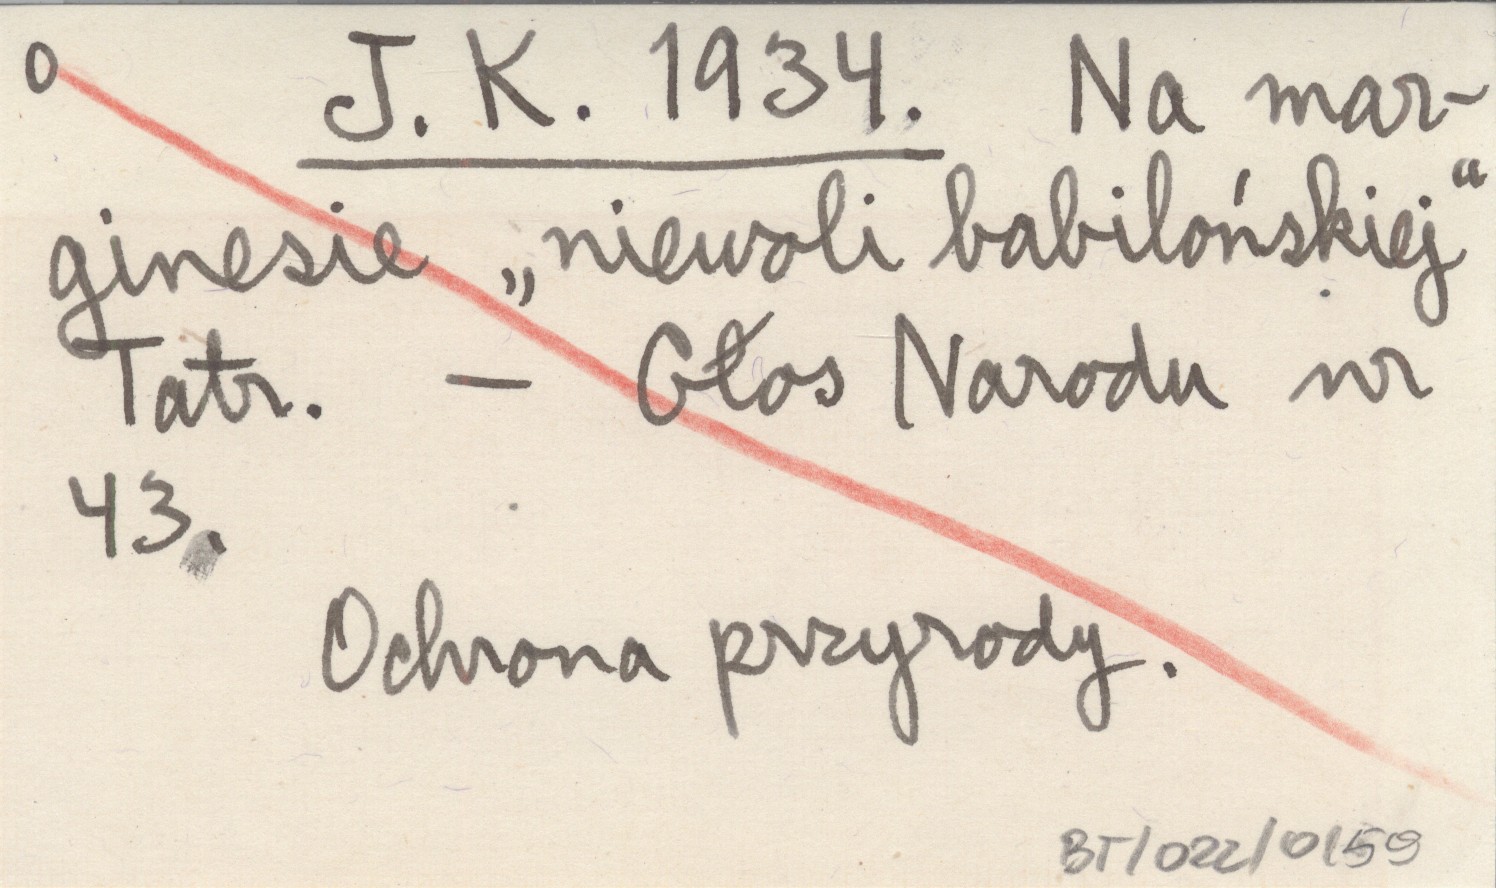 O J. K. 1934. Na mar-
ginesie „niewoli babilońskiej“
Tatr. — Głos Narodu nr
43.
Ochrona przyrody.
BT/022/0159